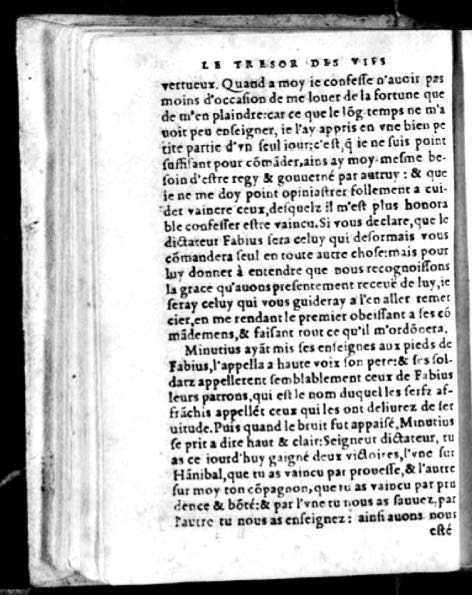 LE TRESOR DES VIES
vertueux. Quand a moy ie confesse n'auoir pas
moins d'occasion de me louer de la fortune que
de m'en plaindre:car ce que le lōg temps ne m'a
uoit peu enseigner, ie l'ay appris en vne bien pe
tite partie d'vn seul iour:c'est, q̃ ie ne suis point
suffisant pour cōmāder,ains ay moy-mesme be-
soin d'estre regy & gouuerné par autruy : & que
ie ne me doy point opiniastrer follement a cui-
der vaincre ceux, desquelz il m'est plus honora
ble confesser estre vaincu. Si vous declare, que le
dictateur Fabius sera celuy qui desormais vous
cōmandera seul en toute autre chose:mais pour
luy donner à entendre que nous recognoissons
la grace qu'auons presentement receuë de luy, ie
seray celuy qui vous guideray a l'en aller remer
cier, en me rendant le premier obeissant a ses cō
mādemens, & faisant tout ce qu'il m'ordōnera.
Minutius ayāt mis ses enseignes aux pieds de
Fabius, l'appella a haute voix son pere:& ses sol-
datz appellerent semblablement ceux de Fabius
leurs patrons, qui est le nom duquel les serfz af-
frāchis appellēt ceux qui les ont deliurez de ser
uitude. Puis quand le bruit fut appaisé, Minutius
se prit a dire haut & clair: Seigneur dictateur, tu
as ce iourd'huy gaigné deux victoires, l'vne sur
Hānibal, que tu as vaincu par prouesse, & l'autre
sur moy ton cōpagnon, que tu as vaincu par pru
dence & bōté:& par l'vne tu nous as sauuez, par
l'autre tu nous as enseignez : ainsi auons nous
esté